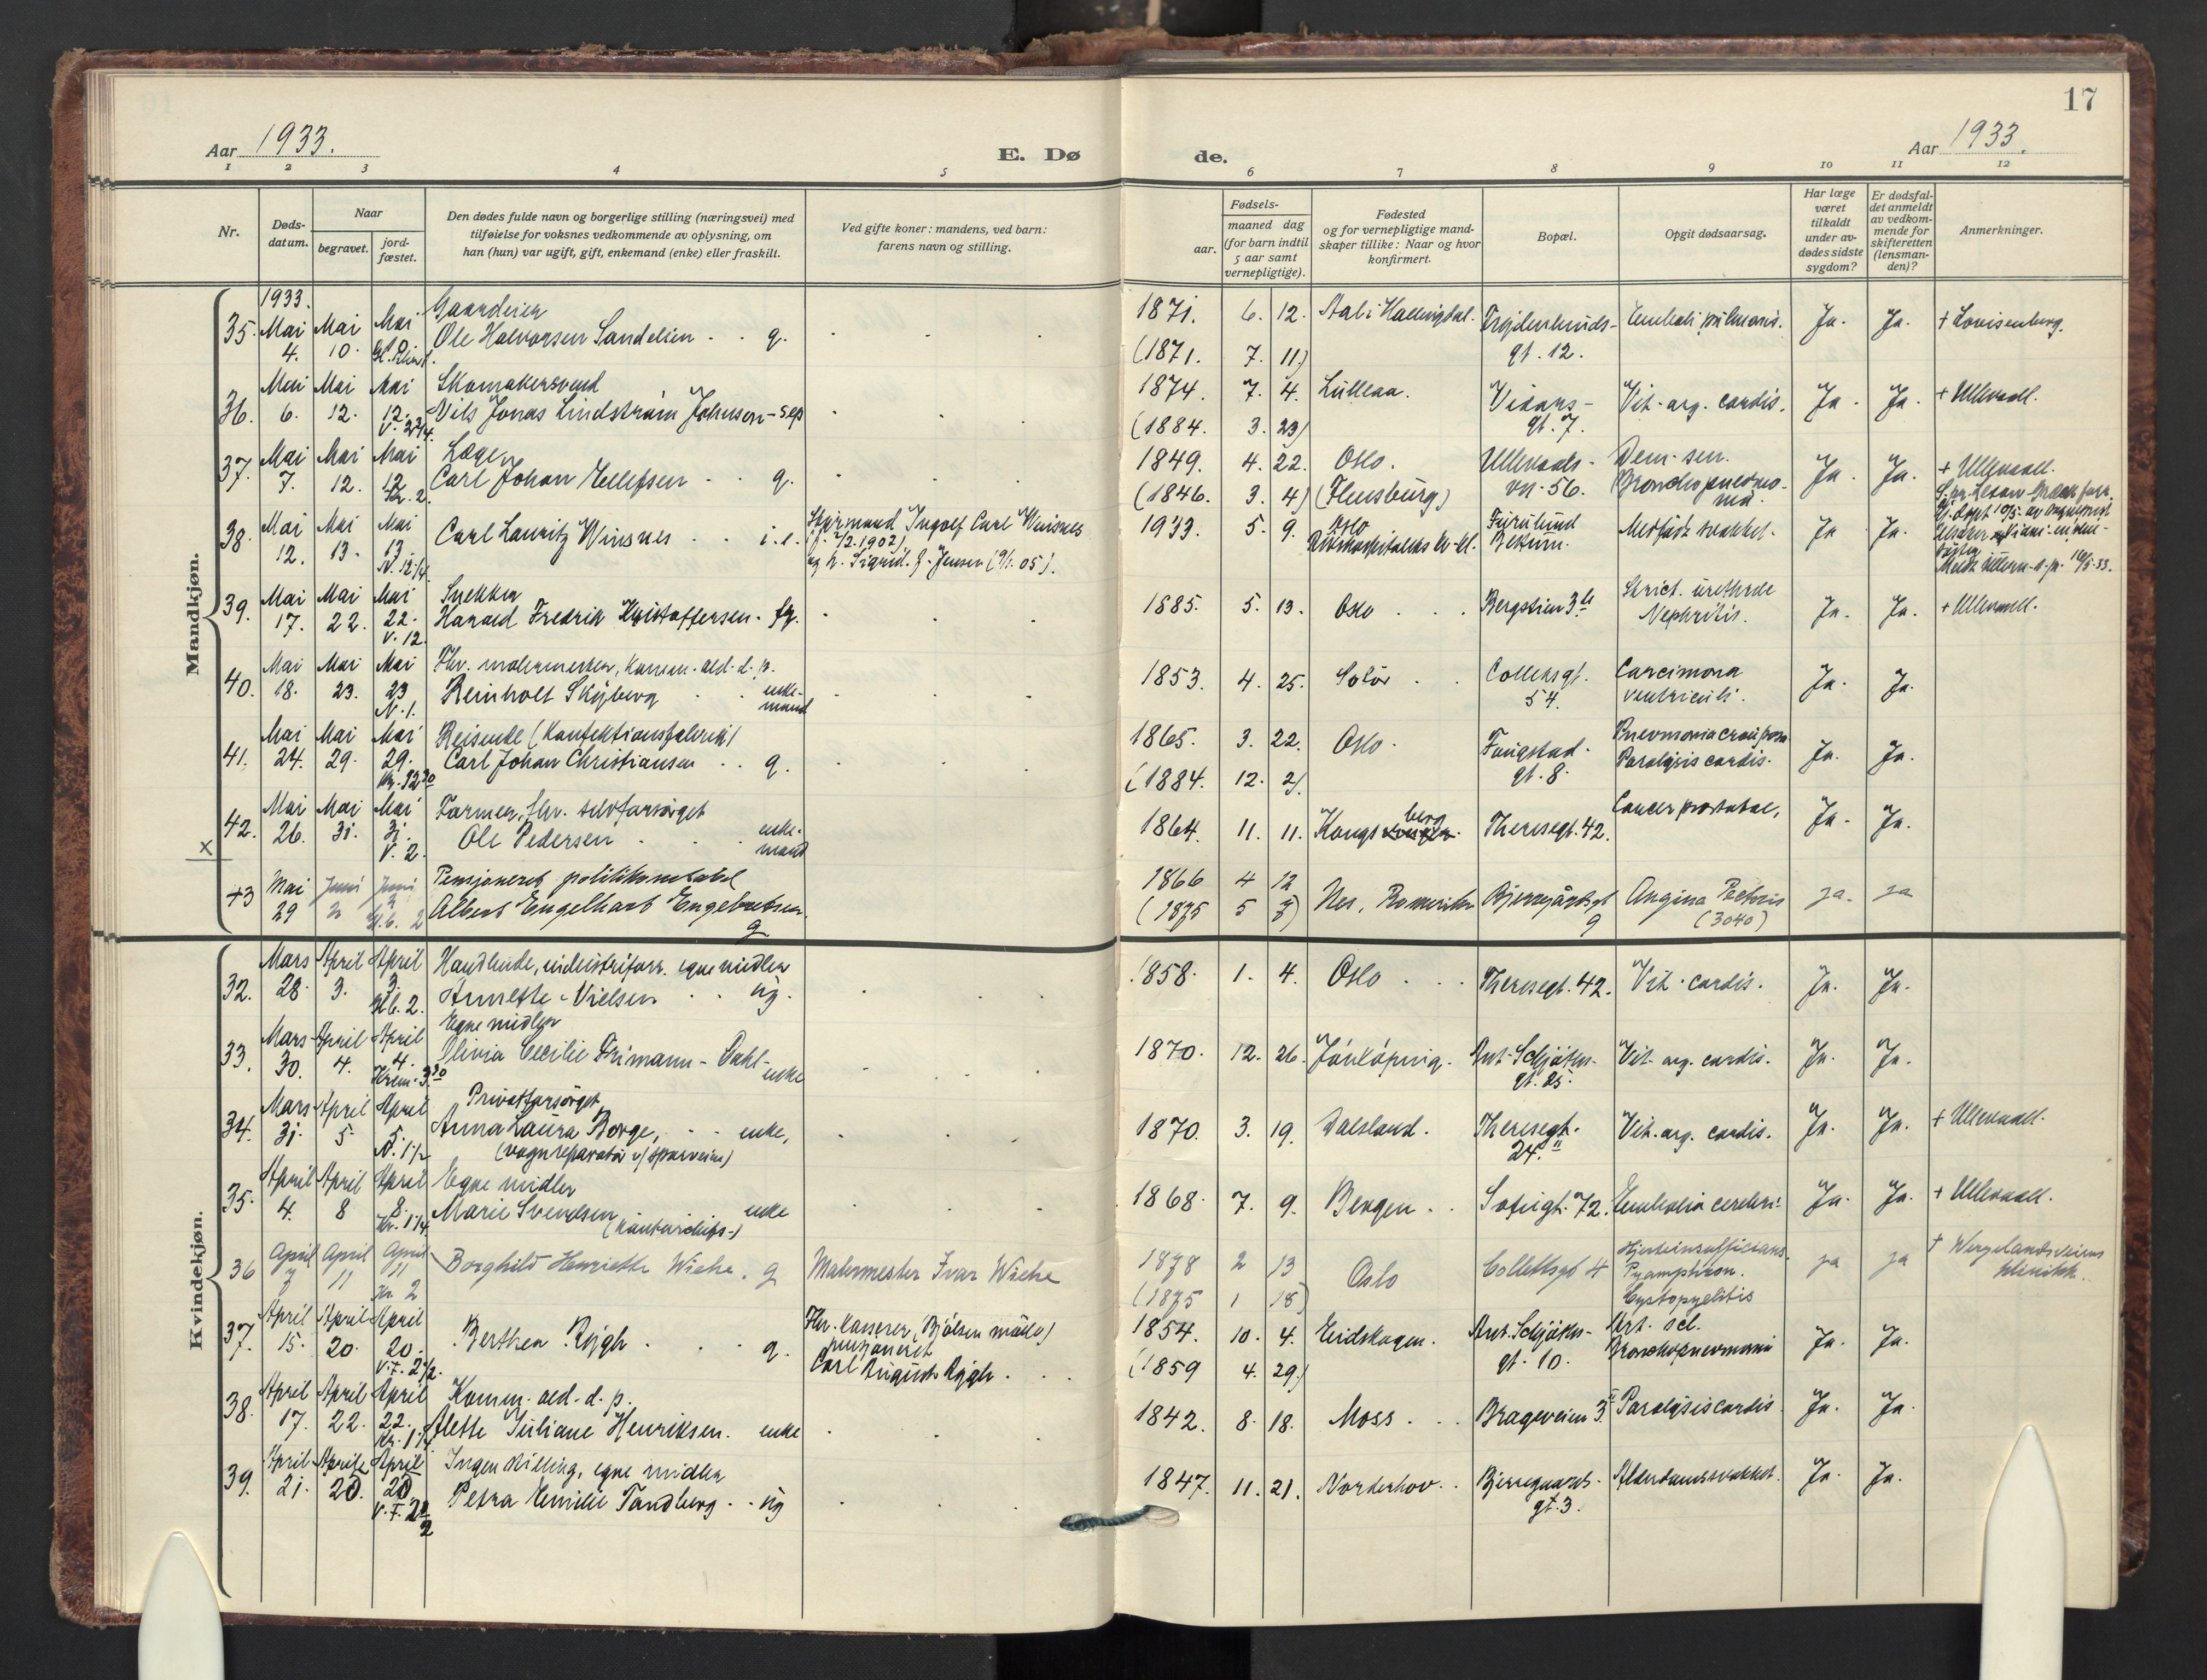 17
Aar 1933.
E. Dø
de.
Aar 1933.
1 2 3 4 5 6 7 8 9 10 11 12
Nr.
Døds-
datum.
Naar
begravet.
jord-
fæstet.
Den dødes fulde navn og borgerlige stilling (næringsvei) med
tilføielse for voksnes vedkommende av oplysning, om
han (hun) var ugift, gift, enkemand (enke) eller fraskilt.
Ved gifte koner: mandens, ved barn:
farens navn og stilling.
Fødsels-
aar.
maaned dag
(for barn indtil
5 aar samt
vernepligtige).
Fødested
og for vernepligtige mand-
skaper tillike: Naar og hvor
konfirmert.
Bopæl.
Opgit dødsaarsag.
Har læge
været
tilkaldt
under av-
dødes sidste
sygdom?
Er dødsfal-
det anmeldt
av vedkom-
mende for
skifteretten
(lensman-
den)?
Anmerkninger.
Mandkjøn.
1933.
35. Mai 4. Mai 10. Mai
Gaardeier
Ole Halvorsen Sandelien . . g.
1871. 6. 12. Aal i Hallingdal.
(1871. 7. 11)
gt. 12.
Emboli pulmonis. Ja. Ja. + Lovisenberg.
36. Mai 6. Mai 12. Mai 12.
Skomakersvend
Nils Jonas Lindstrøm Johnsen - sep
1874. 7. 4.
(1884. 3. 23)
Vidars-
gt. 7.
Vit. org. cordis. Ja. Ja. + Ullevaal.
37. Mai 7. Mai 12. Mai 12 Kr. 2.
Læge
Carl Johan Ellefsen . . g.
1849. 4. 22. Oslo.
(1846. 3. 4) (Flensburg)
Ullevaals-
vn. 56.
Dem. sen.
Bronchopneumo-
nia
Ja. Ja. + Ullevaal.
38. Mai 12. Mai 13. Mai 13
Carl Lauritz Winsnes . . i.e.
Styrmand Ingolf Carl Winsnes
(f. 2/2.1902)
og h. Sigrid. f. Jensen (9/1.05).
1933. 5. 9. Oslo
Furulund
Bekkum.
Medfødt svakhet. Ja Ja.
39. Mai 17. Mai 22. Mai 22. V. 12.
Snekker
Harald Fredrik Kristoffersen. fg.
1885. 5. 13. Oslo . . . Bergstien 3
Strict. urethrae
Nephritis.
Ja. Ja. + Ullevaal.
40. Mai 18. Mai 23. Mai 23 N. 1.
Fhv. malermester, Komm. ald. d. p.
Reinholt Skyberg . . enke-
mand
1853. 4. 25. Solør . . Collettsgt.
54.
Carcinoma
ventriculi.
Ja. Ja.
41. Mai 24. Mai 29. Mai 29.
Reisende (Konfektionsfabrik)
Carl Johan Christiansen . . g.
1865. 3. 22. Oslo.
(1884. 12. 2)
Fougstad-
gt. 8.
Pneumonia crouposa
Paralysis cordis.
Ja. Ja.
42. Mai 26. Mai 31. Mai 31. V. 2.
Farmer, fhv. selvforsørget
Ole Pedersen . . . enke-
mand
1864. 11. 11. Kongsberg Theresegt. 42.
Cancer prostatae, Ja. Ja.
x
43 Mai 29 Juni 2 Juni 2
Pensjonert politikonstabel
Albert Engelhart Engebretsen
g
1866 4 12
(1875 5 7)
Nes, Romerike Bjerregårdsgt
9
Angina Pectoris
(3040)
ja. ja
Kvindekjøn.
32. Mars 28. April 3. April 3.
Handlende, industriforr. egne midler
Annette Nielsen . . ug.
1858. 1. 4. Oslo . . . Theresegt. 42. Vit. cordis. Ja. Ja.
33. Mars 30. April 4. April 4. Krem. 3.30
Egne midler
Olivia Cecilie Frimann-Dahl-
enke
1870. 12. 26. Jönköping. Ant. Schjøths-
gt. 25.
Vit. org. cordis. Ja. Ja.
34. Mars 31. April 5. April 5. N. 1 1/2
Privatforsørget
Anna Laura Borge, . . enke,
(vognreparatør v/ sporveien)
1870. 3. 19. Dalsland. Theresegt.
24.
Vit. org. cordis. Ja. Ja. + Ullevaal.
35. April 4. April 8 April 8. Kr. 1 1/4
Egne midler
Marie Svendsen enke
(kontorchefs-)
1868. 7. 9. Bergen . . Sofiegt. 72. Embolia cerebri. Ja. Ja. + Ullevaal.
36 April 7 April 11 April 11 Kr 2
Borghild Henriette Wiche . g Malermester Ivar Wiche
1878 2 13
(1875 1 18)
Oslo Collettsgt 4
Hjerteinsufficiens.
Cystopyelitis
ja ja † Wergelandsveiens
klinikk.
37. April 15. April 20. April 20. V.F. 2 1/2.
Berthea Rygh . . . g.
Fhv. kasserer (Bjølsen mølle)
pensjonert
Carl August Rygh . . .
1854. 10. 4. Eidskogen.
(1859 4. 29.)
Ant. Schjøths-
gt. 10.
Art. scl.
Bronchopneumonia
Ja. Ja.
38. April 17. April 22. April 22. Kr. 1 1/4
Komm. ald. d. p.
Alette Juliane Henriksen. enke
1842. 8. 18. Moss . . . Brageveien 3. Paralysis cordis. Ja. Ja.
39. April 21. April 20. April 20 V.F. 2
Ingen stilling, egne midler
Petra Emilie Tandberg . . ug
1847. 11. 21. Norderhov . . Bjerregaards-
gt. 3.
Alderdomssvakhet. Ja. Ja.